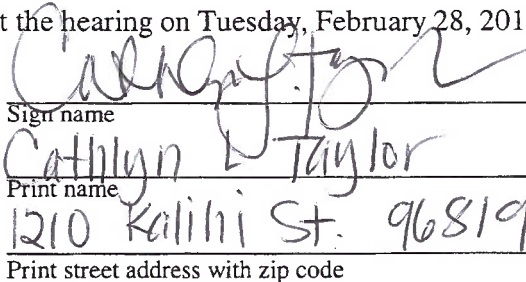 t the hearing on Tuesday, February 28, 201
Sign name
Cathlyn L Taylor
Print name
1210 Kalihi St. 96819
Print street address with zip code